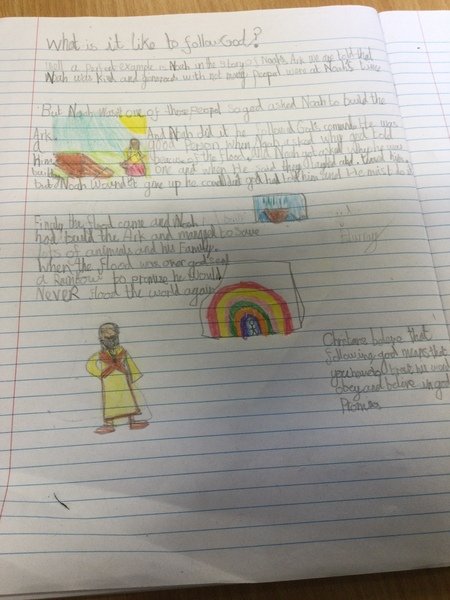 What is it like to follow God?
Well a perfect example is Noah in the story of Noah's Ark we are told that
Noah was kind and with not many Peopel were at Noah's time
But Noah wasn't one of those Peopel so god asked Noah to build the
Ark. And Noah did it he followed God's commands He was
a good Person when People asked what why he was
building one and when He said they laughed and him.
but Noah Wouldn't give up he god had told him and He must do it
Finaly the flood came and Noah
had build the Ark and managed to save
lots of animals and his family.
When the flood was over god sent
a Rainbow to promise he would
NeveR flood the world again
Christians beleive that
following god means that
you have to his
obey and beleve in god
Promises